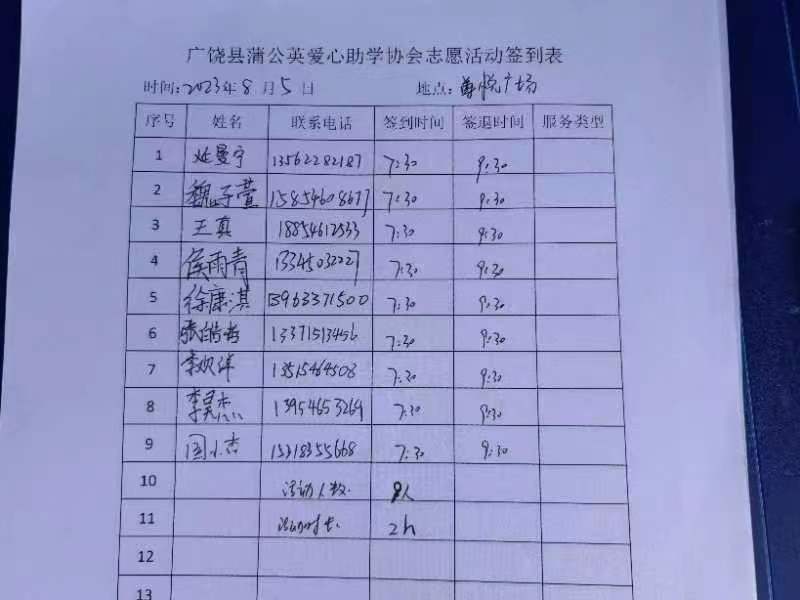 广饶县蒲公英爱心助学协会志愿活动签到表
时间:2023年8月5日 地点:尊悦广场
序号 姓名 联系电话 签到时间 签退时间 服务类型
1 13562282187 7:30 9:30
2 魏子萱 15854608677 7:30 9:30
3 王真 18854612533 7:30 9:30
4 侯雨青 13345032227 7:30 9:30
5 徐康淇 13963371500 7:30 9:30
6 张皓 13371513456 7:30 9:30
7 李欢洋 13515464508 7:30 9:30
8 李昊杰 13954653264 7:30 9:30
9 周小杰 15318355668 7:30 9:30
10 活动人数 9人
11 活动时长 2h
12
13